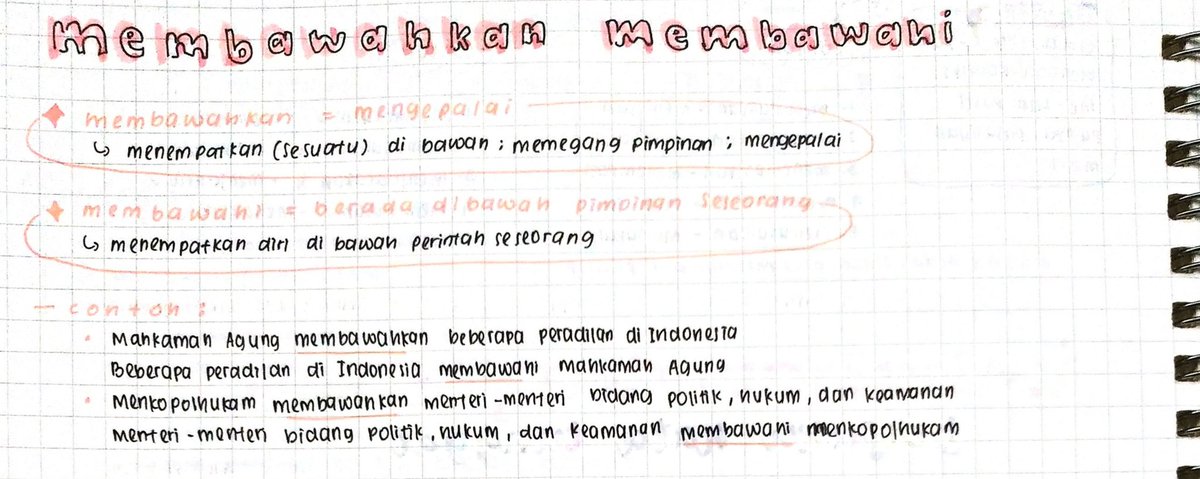 membawahkan membawahi
membawahkan = mengepalai
↳ menempatkan (sesuatu) di bawah ; memegang pimpinan ; mengepalai
membawahi = berada dibawah pimpinan seseorang
↳ menempatkan diri di bawah perintah seseorang
— contoh :
• Mahkamah Agung membawahkan beberapa peradilan di Indonesia
Beberapa peradilan di Indonesia membawahi mahkamah Agung
• Menkopolhukam membawahkan menteri-menteri bidang politik, hukum, dan keamanan
Menteri-menteri bidang politik, hukum, dan keamanan membawahi menkopolhukam